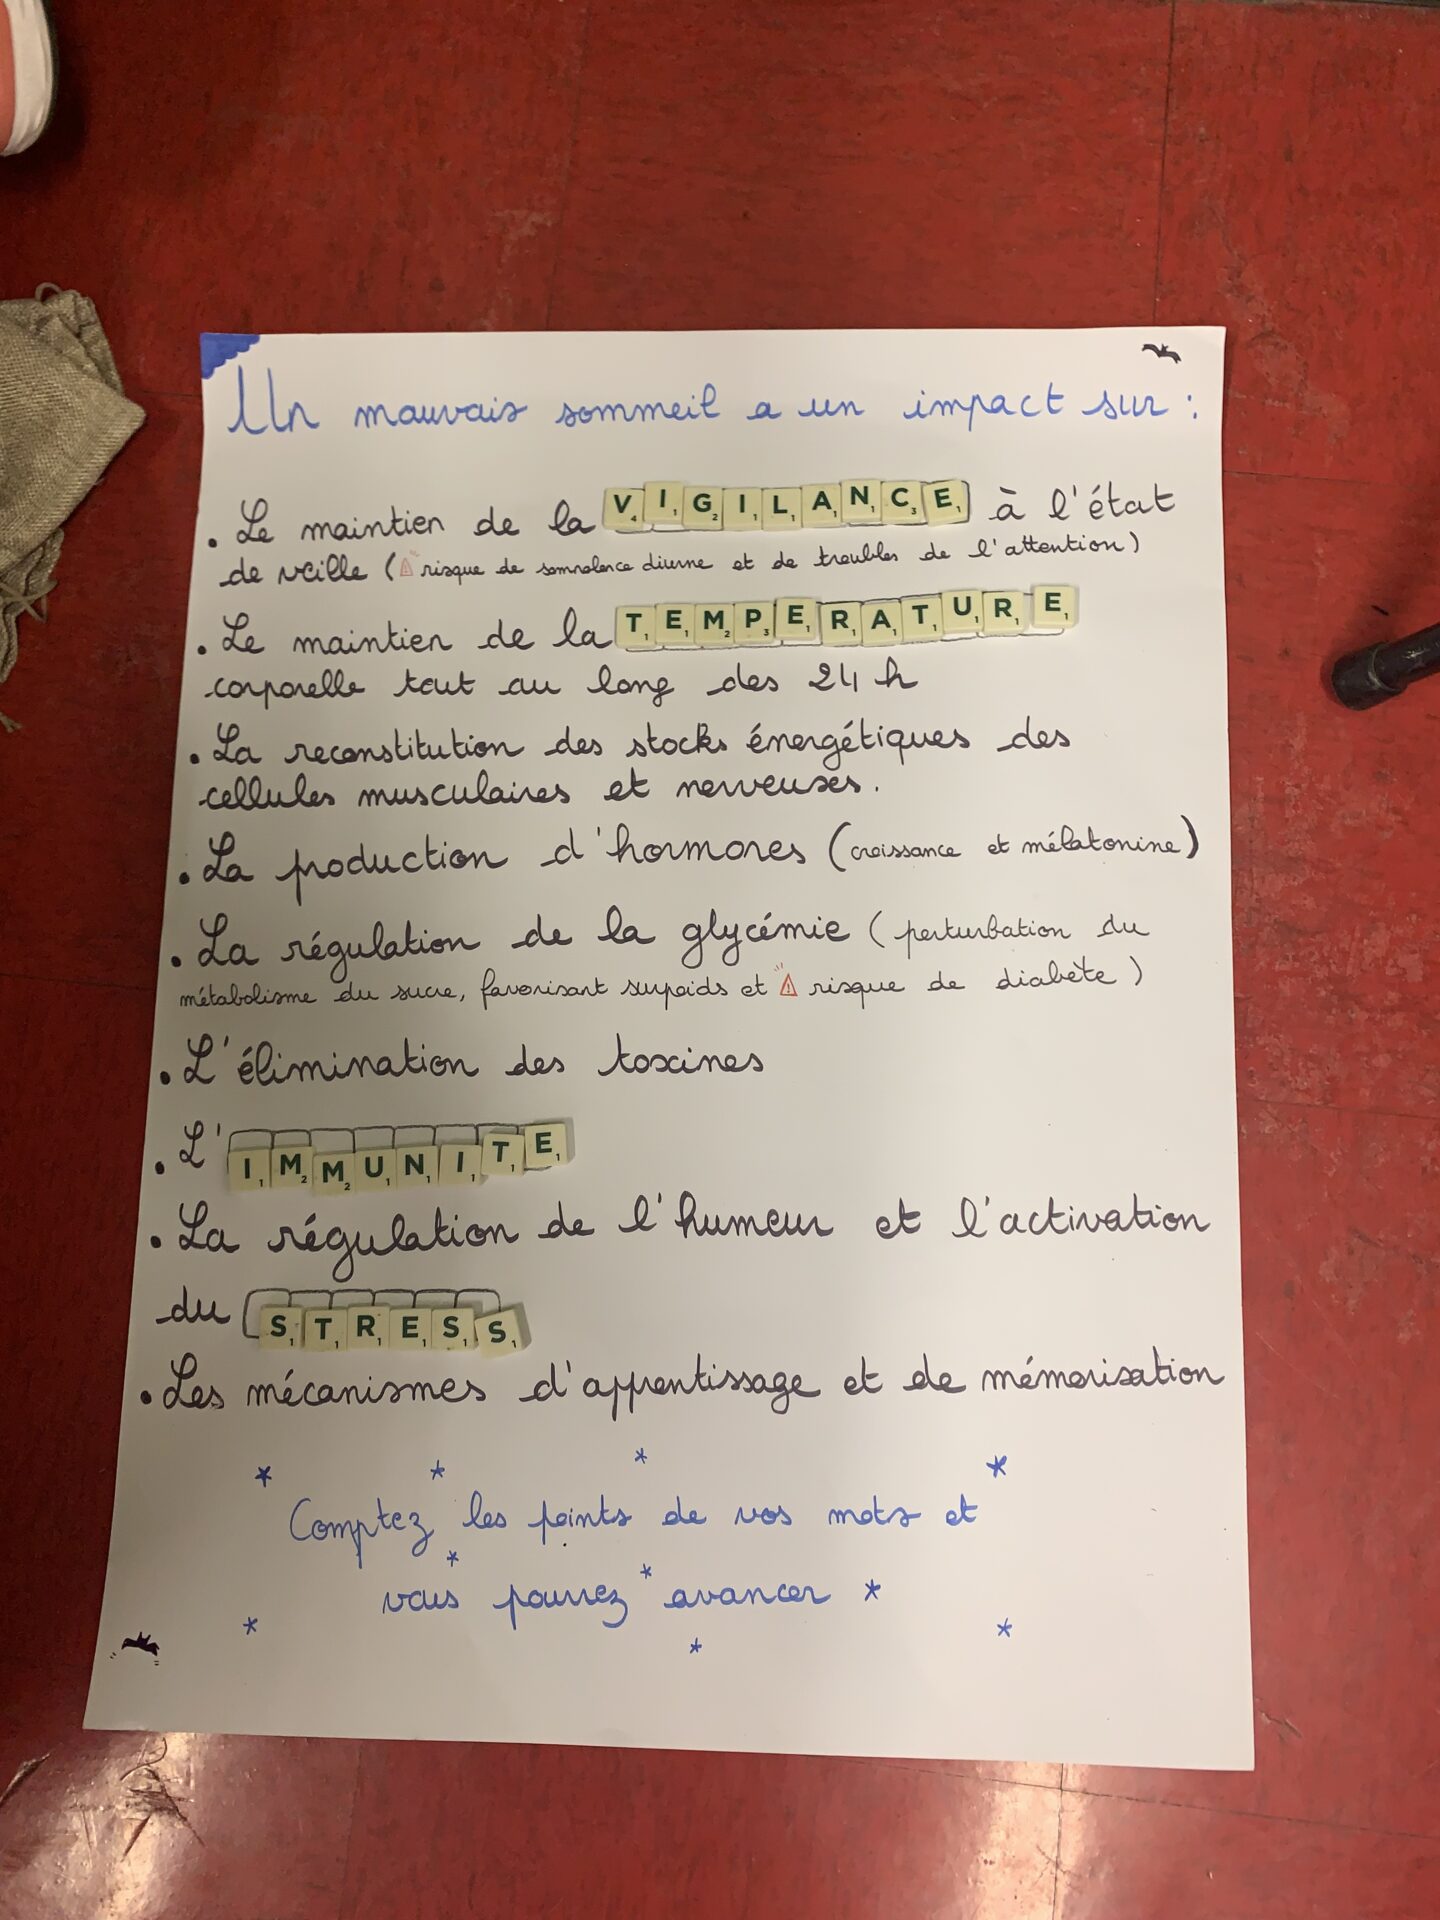 Un mauvais sommeil a un impact sur :
• Le maintien de la VIGILANCE à l'état
de veille (⚠ risque de somnolence diurne et de troubles de l'attention)
• Le maintien de la TEMPERATURE
corporelle tout au long des 24 h
• La reconstitution des stocks énergétiques des
cellules musculaires et nerveuses.
• La production d'hormones (croissance et mélatonine)
• La régulation de la glycémie (perturbation du
métabolisme du sucre, favorisant surpoids et ⚠ risque de diabète)
• L'élimination des toxines
• L'IMMUNITE
• La régulation de l'humeur et l'activation
du STRESS
• Les mécanismes d'apprentissage et de mémorisation
Comptez les points de vos mots et
vous pourrez avancer